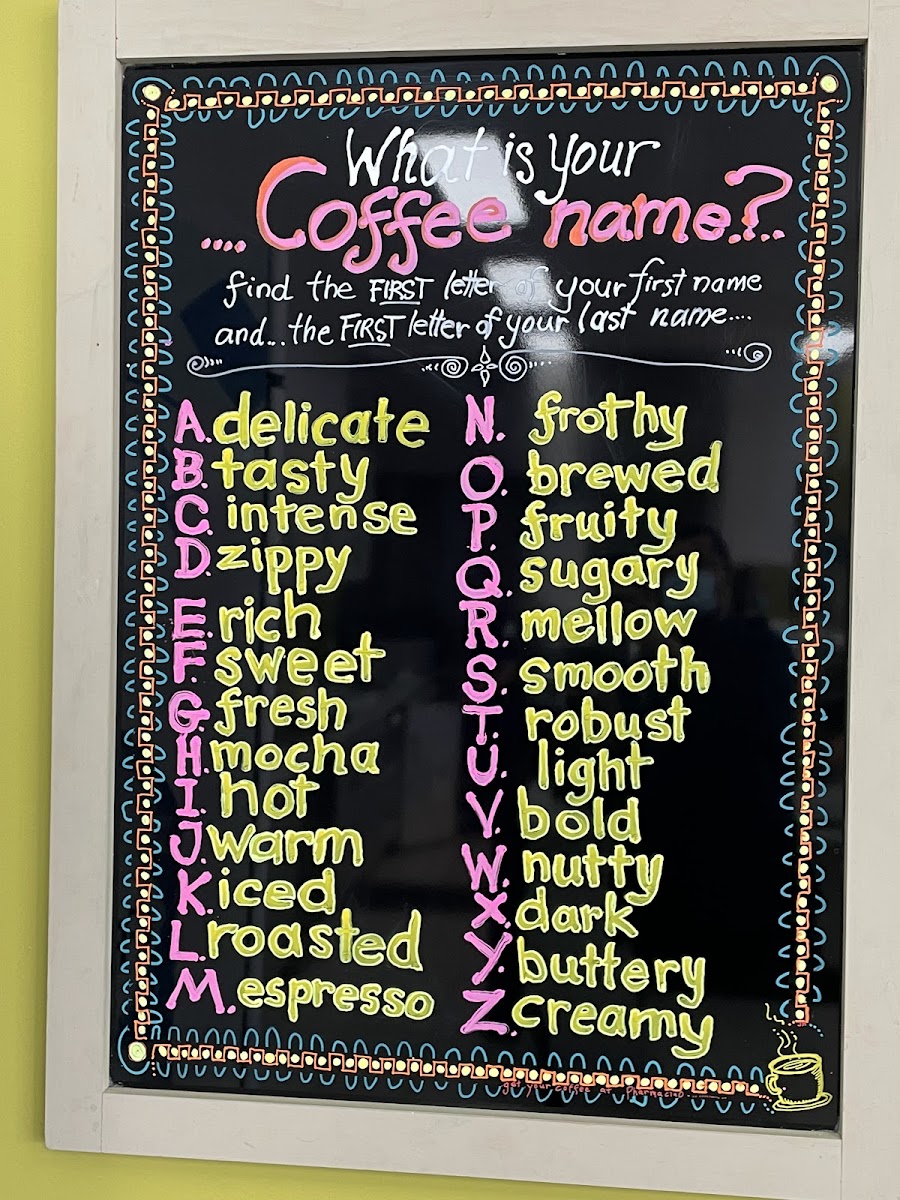 What is your
....Coffee name?...
find the FIRST letter of your first name
and...the FIRST letter of your last name....
A. delicate
B. tasty
C. intense
D. zippy
E. rich
F. sweet
G. fresh
H. mocha
I. hot
J. warm
K. iced
L. roasted
M. espresso
N. frothy
O. brewed
P. fruity
Q. sugary
R. mellow
S. smooth
T. robust
U. light
V. bold
W. nutty
X. dark
Y. buttery
Z. creamy
get your coffee at